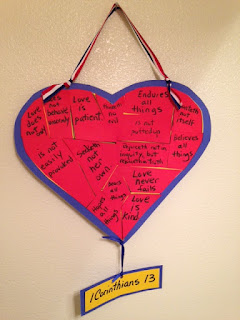 Love
does
not
not
behave
Love
is
patient
Endures
all
things
is not
puffed up
not
itself
believes
all
things
is not
easily
provoked
Seeks
not
her
own
Rejoiceth not in
iniquity, but
Love
never
fails
Bears all
things
Hopes
all
things
Love
is
Kind
1 Corinthians 13